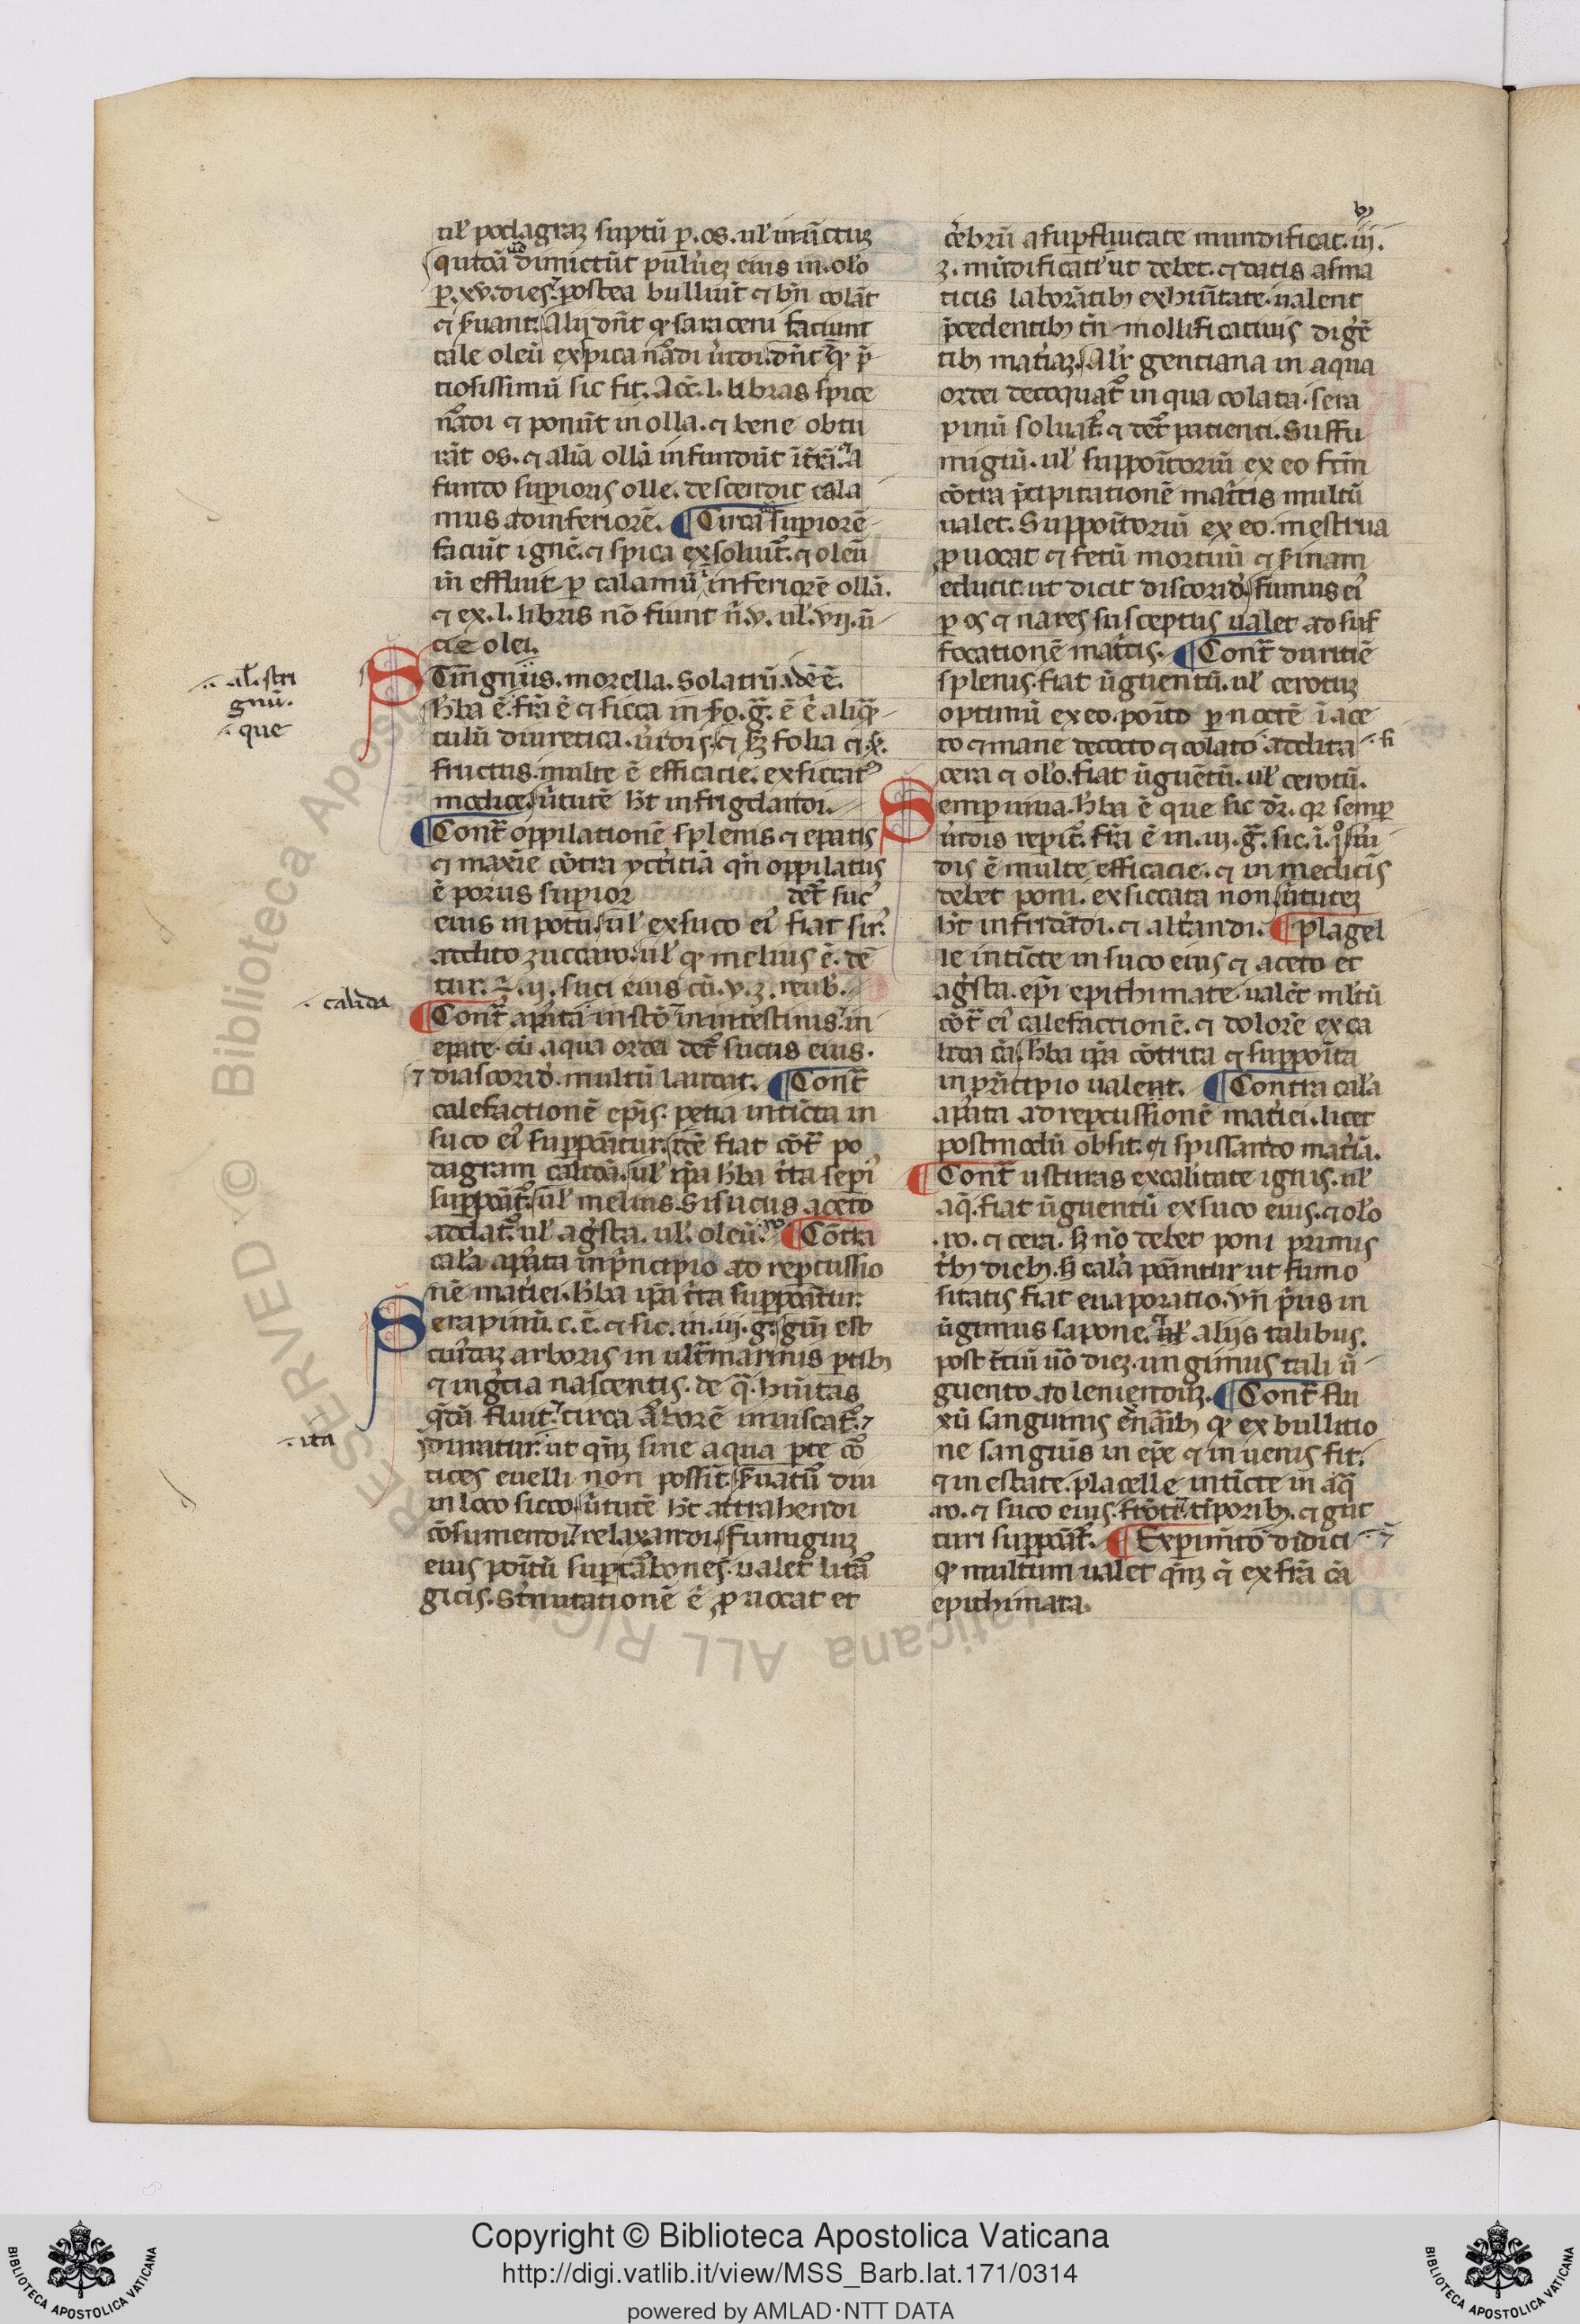 ul̕ podagraꝫ suptū ꝑ. os. ul̕ inūctuꝫ
quidā dimictūt pulu̕eꝫ eius in ol̕o
ꝑ. xv. dies. postea bulliūt ⁊ bn̄ colāt
⁊ s̕uant. Alij dn̄t ꝙ saraceni faciunt
tale oleū ex spica nardi
tiosissimū sic fit. Acc̄. l. libras spice
nardi ⁊ poniūt in olla. ⁊ bene obtu
rāt os. ⁊ aliā ollā infundūt
fundo suꝑioris olle. descendit cala
mus ad inferiorē. ¶ Circa suꝑiorē
faciūt ignē. ⁊ spica exsoluit̄. ⁊ oleū
in̄ effluit ꝑ calamū in inferiorē ollā.
⁊ ex. l. libris nō fiunt n̄. v. ul̕. vij. ū
cie olei.
Strignus. morella. Solatrū idē ē.
h̕ba ē. fr̄a ē ⁊ sicca in
culū diuretica. uirdis ⁊ folia ⁊
fructus. multe ē efficacie. exsiccat̕
modice. u̕tutē ht̄ infrigdandi.
¶ Cont̄ oppilationē splenis ⁊ epatis
⁊ maxīe cōtra yct̕iciā qn̄ oppilatus
ē porus suꝑior det̄ suc̕
eius in potu. ul̕ ex suco ei̕ fiat sir̕.
addito zuccaro. ul̕ ꝙ melius ē. de
tur. ij. suci eius cū. v. ʒ. reub̕.
¶ Cont̄ apata in sto in intestinis. in
epate. cū aqua ordei det̄ sucus eius.
⁊ diascorid̕. multū laudat. ¶ Cont̄
calefactionē epis̄. petia intīcta in
suco ei̕ suppōatur. idē fiat cōt̄ po
dagram calidā. ul̕ ip̄a h̕ba t̄ita sepi̕
suppōat̕. ul̕ melius. Si sucus aceto
addat̕. ul̕ ag̕sta. ul̕. oleū. ro ¶ Cōtra
cal̕a apata in pn̄cipio ad reꝑcussio
nē mat̕iei. h̕ba ip̄a t̄ita suppōatur.
Serapinū. c. ē. ⁊ sic. in. iij. g̕. gm̄i est
cuiusdaꝫ arboris in ult̄marinis ꝑtibꝫ
⁊ in g̕cia nascentis. de q̄. hūitas
qd̄ā fluit. circa arborē inuiscat̕. ⁊
duratur. ut qn̄ꝫ sine aqua ꝑte cor
tices euelli non possit. s̕uatū diu
in loco sicco. u̕tutē ht̄ attrahendi
cōsumendi. relaxandi. Fumiguꝫ
eius poītū suꝑ carbones. ualet litar
gicis. St̕nutationē ē ꝓuocat et
c̕ebrū a suꝑfluitate mundificat. iij.
ʒ. mūdificati ut debet. ⁊ datis asma
ticis laborātibꝫ ex hūitate. ualent
p̄cedentibꝫ tn̄ mollificatiuis dig̕e
tibꝫ mat̕iaꝫ. Alr̕ gentiana in aqua
ordei decoquat̕ in qua colata. sera
pinū soluat̕. ⁊ det̄ patienti. Suffu
migiū. ul̕ suppoītoriū ex eo fc̄m
cōtra p̄cipitationē mat̕cis multū
ualet. Suppoītoriū ex eo. mestrua
ꝓuocat ⁊ fetū mortuū ⁊ s̕inam
educit. ut dicit discorid̕. fumus ei̕
ꝑ os ⁊ nares susceptus ualet ad suf
focationē mat̕cis. ¶ Cont̄ duritiē
splenis. fiat ūguentū. ul̕ cerotuꝫ
optimū ex eo. poīto ꝑ noctē ī ace
to ⁊ mane decocto ⁊ colato addita
cera ⁊ ol̕o. fiat ūguētū. ul̕ cerotū.
Semꝑuiua. h̕ba ē que sic dr̄. qr̄ semꝑ
u̕idis reꝑit̄. fr̄a ē in. iij. g̕. sic. ī. j. uiri
dis ē multe efficacie. ⁊ in medicīs
debet poni. exsiccata non u̕tuteꝫ
ht̄ infridādi. ⁊ alt̕andi. ¶ plagel
le intīcte in suco eius ⁊ aceto et
ag̕sta. epi epithimate. ualēt ml̕tū
cōt̄ ei̕ calefactionē. ⁊ dolorē ex ca
lida cā. h̕ba ip̄a cōtrita ⁊ suppoīta
in pn̄cipio ualent. ¶ Contra cal̕a
apata ad reꝑcussionē mat̕iei. licet
postmodū obsit. ⁊ spissando mat̕iā.
¶ Cont̄ usturas ex caliditate ignis. ul̕
aq̄. fiat ūguentū ex suco eius. ⁊ ol̕o
.ro. ⁊ cera. sꝫ nō debet poni primis
t̕bꝫ diebꝫ. sꝫ cal̕a pōantur ut fumo
sitatis fiat euaporatio. vn̄ p̕us in
ūgimus sapone. aliis talibus.
post t̄ciū uō dieꝫ. ungimus tali ū
guento ad leniendūꝫ. ¶ Cont̄ flu
xū sanguinis e narib ꝙ ex bullitio
ne sanguīs in epe ⁊ in uenis fit.
⁊ in estate. placelle intīcte in aq̄
.ro. ⁊ suco eius. frōti. tp̄oribꝫ. ⁊ gut
turi suppōat̕. ¶ Expim̄to didici
ꝙ multum ualet ex fr̄a cā
epithimata.
.al̕. stri
gnū.
que
calida
ita
Copyright © Biblioteca Apostolica Vaticana
http://digi.vatlib.it/view/MSS_Barb.lat.171/0314
powered by AMLAD·NTT DATA
© Biblioteca Apostolica Vaticana ALL RIGHTS RESERVED
BIBLIOTECA APOSTOLICA VATICANA
BIBLIOTECA APOSTOLICA VATICANA